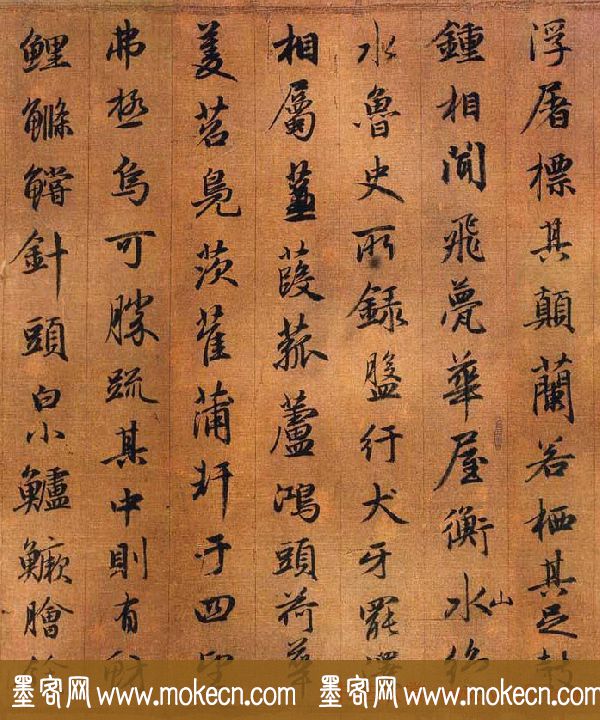 浮屠標其顛蘭若栖其足鼓
鍾相聞飛甍華屋衡山水
水魯史所錄盤行犬牙罷澤
相屬蒹葭菰蘆鴻頭荷華
菱苕鳧茨萑蒲軒于四望
弗極烏可勝疏其中則有
鯉鰷鱨針頭白小鱸鱖膾
墨客网 www.mokecn.com 墨客网 www.mokecn.com